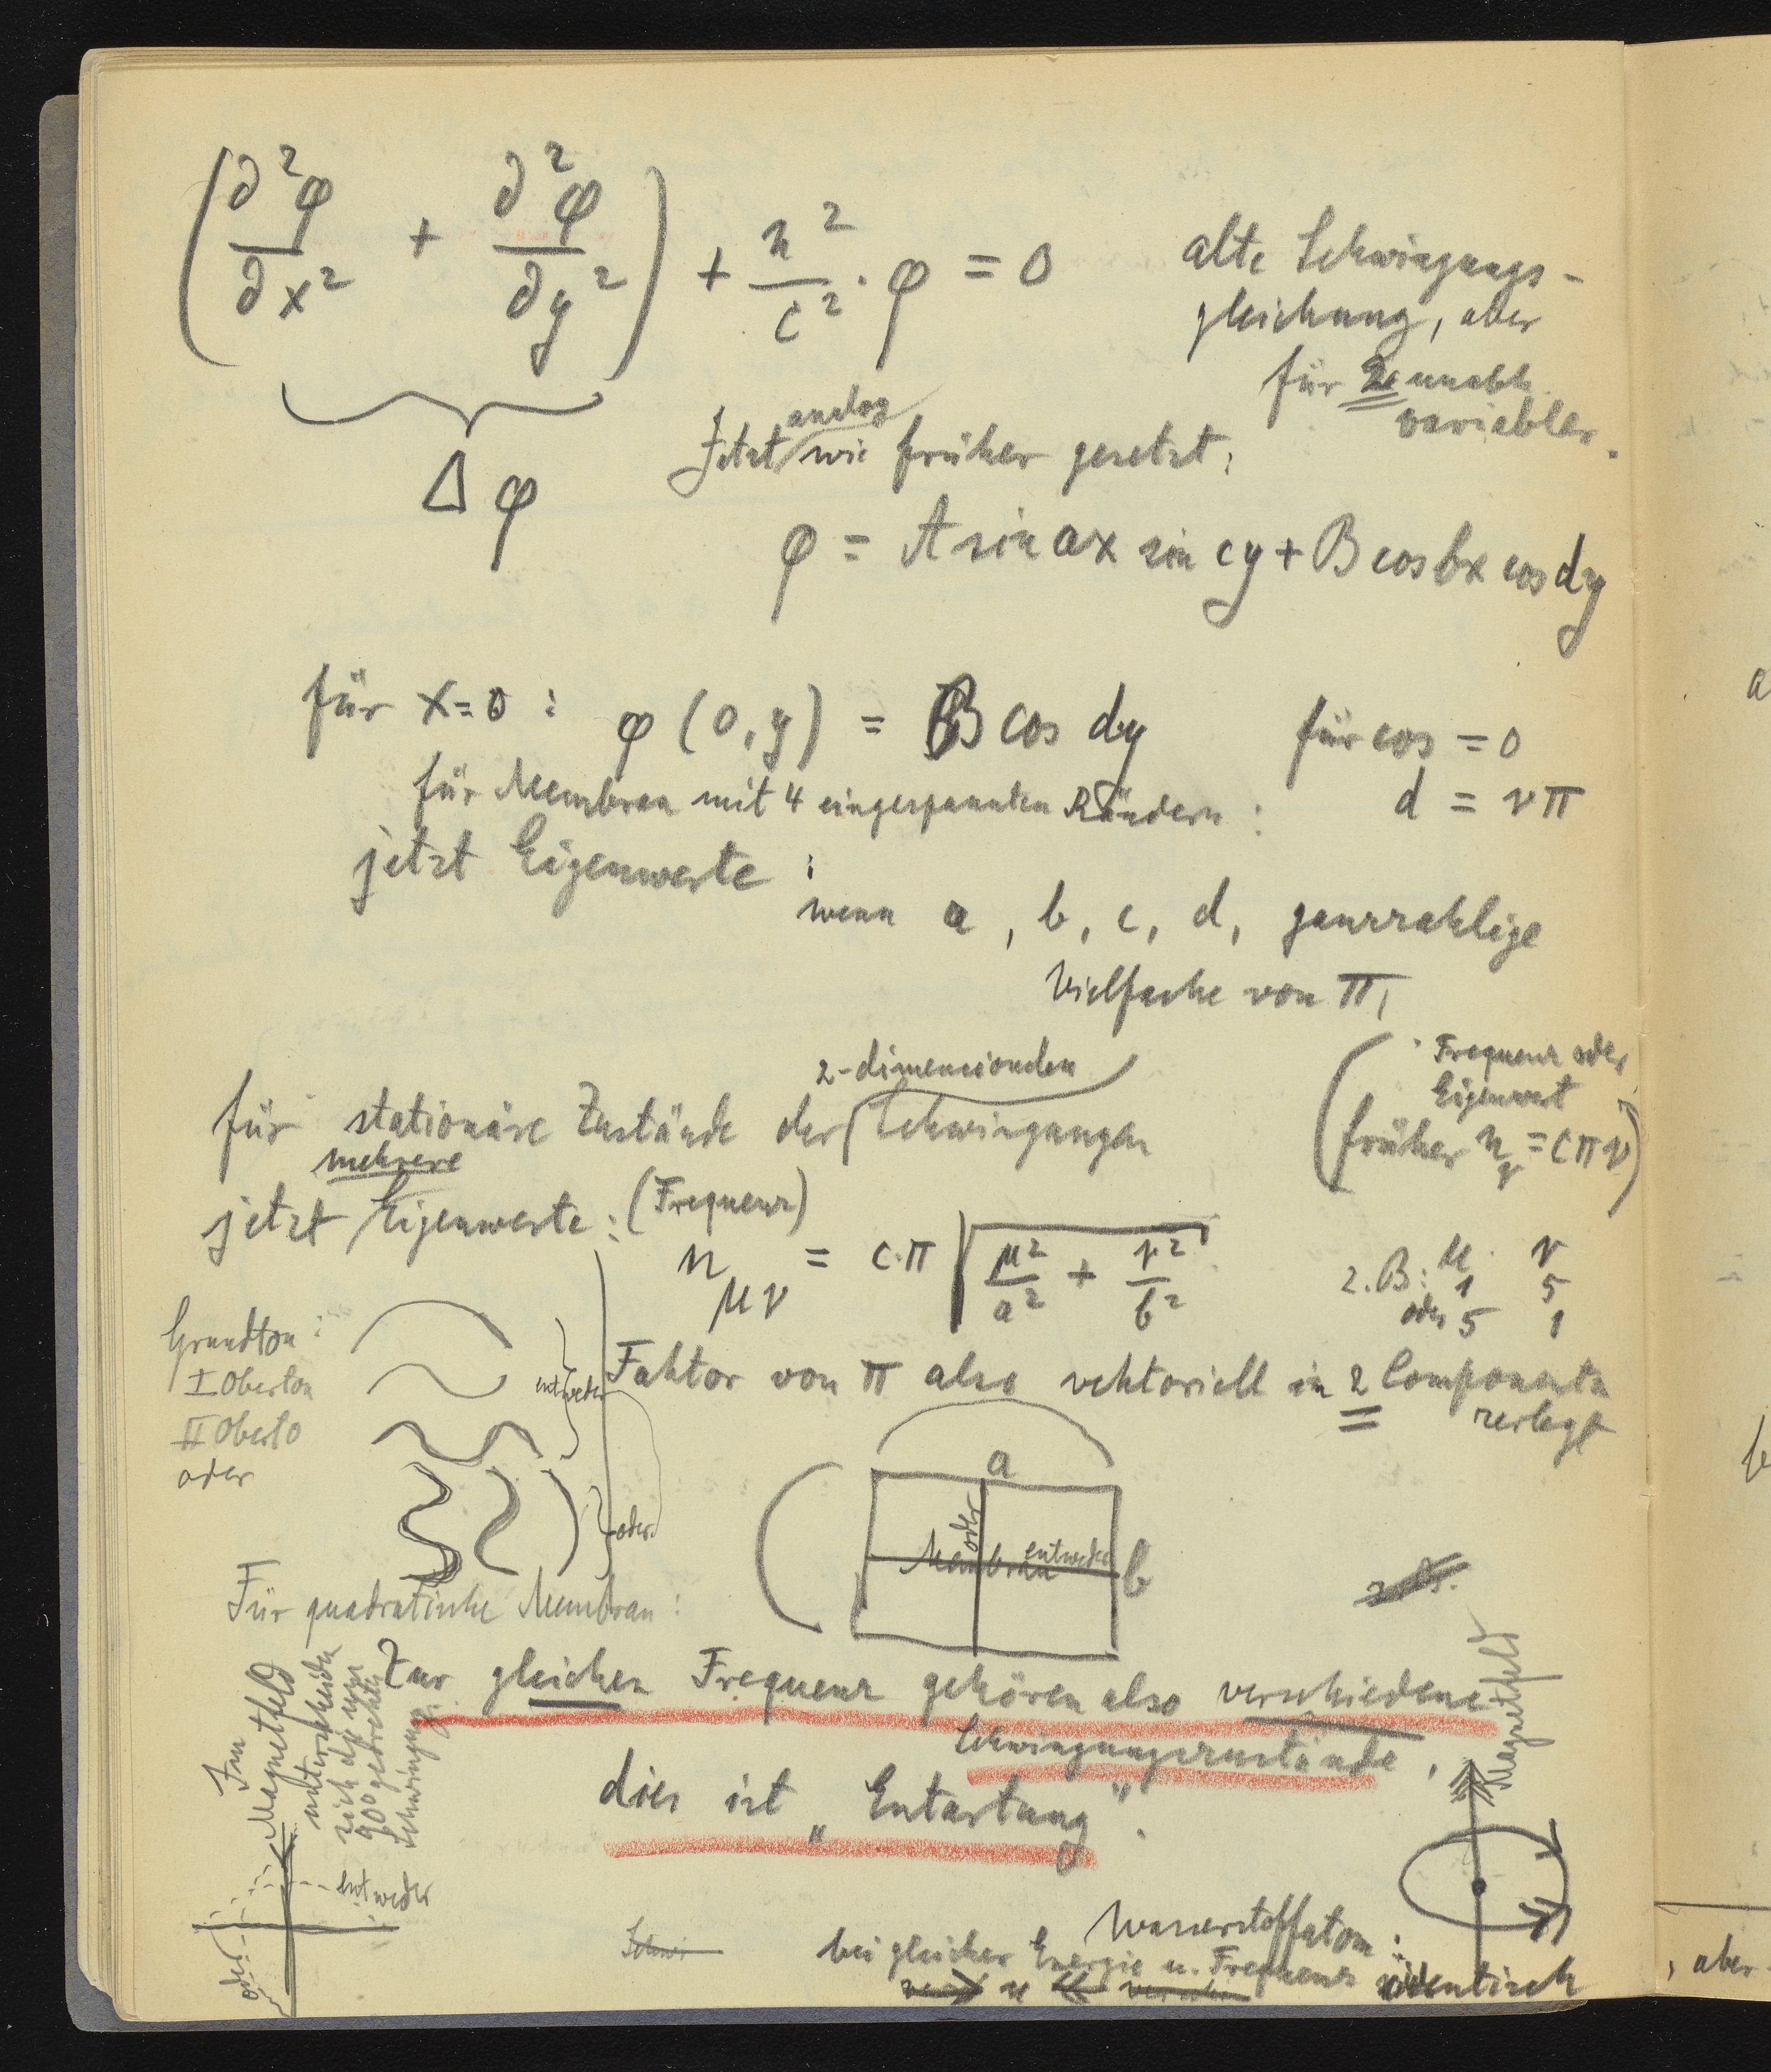 (∂²φ/∂x² + ∂²φ/∂y²) + n²/c² · φ = 0
alte Schwingungs-
gleichung, aber
für 2 unabh.
variabler.
Δφ
analog
Jetzt wie früher gesetzt:
φ = A sin ax sin cy + B cos bx cos dy
für x=0: φ(0,y) = B cos dy
für cos = 0
für Membran mit 4 eingespannten Rändern:
d = νπ
jetzt Eigenwerte:
wenn a, b, c, d, ganzzahlige
Vielfache von π,
2-dimensionalen
für stationäre Zustände der Schwingungen
Frequenz oder
Eigenwert
(früher nν = cπν)
mehrere
jetzt Eigenwerte: (Frequenz)
nμν = c·π √(μ²/a² + ν²/b²)
z.B: μ ν
1 5
oder 5 1
Grundton:
I Oberton
II Oberto
oder
entweder
oder
Faktor von π also vektoriell in 2 Componenten
zerlegt
a
b
oder
entweder
Membran
Für quadratische Membran:
z.B.
Zur gleichen Frequenz gehören also verschiedene
Schwingungszustände,
dies ist „Entartung".
Im
Magnetfeld
unterscheiden
sich die um
90° gedrehten
Schwingung.
entweder
oder
Magnetfeld
Schwi
Wasserstoffatom:
bei gleicher Energie u. Frequenz identisch
u
, aber